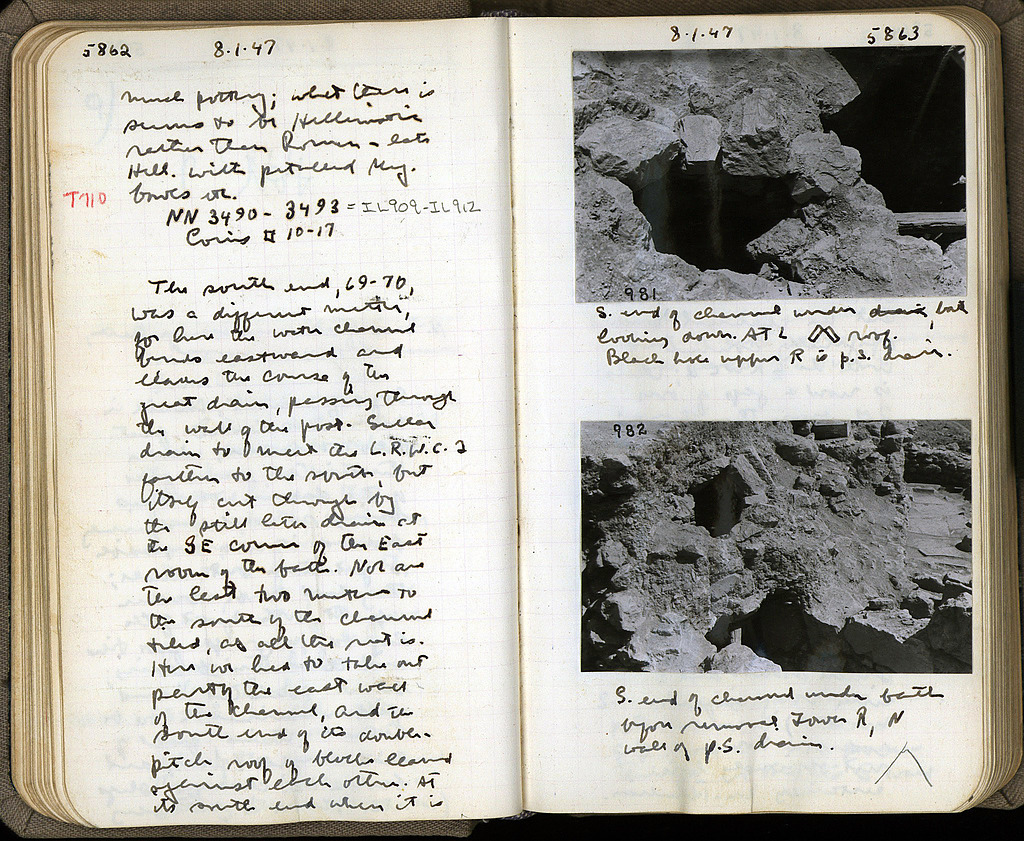 5862 8.1.47
much pottery; what there is
seems to be Hellenistic
rather than Roman - late
Hell. with pitched Meg.
bowls etc.
T710
NN 3490 - 3493 = IL909-IL912
Coins 10-17
The south end, 69-70,
was a different matter,
for here the water channel
bends eastward and
leaves the course of the
great drain, passing through
the wall of the post-Sullan
drain to meet the L.R.W.C. 2
farther to the south, but
itself cut through by
the still later drain at
the SE corner of the East
room of the bath. Nor are
the last two meters to
the south of the channel
tiled, as all the rest is.
Here we had to take out
part of the east wall
of the channel, and the
south end of its double-
pitch roof of blocks leaned
against each other. At
its south end where it is
8.1.47 5863
981
S. end of channel under drain, bath
looking down. At L roof.
Black hole upper R is p.S. drain.
982
S. end of channel under bath
before removal. Lower R, N
wall of p.S. drain.